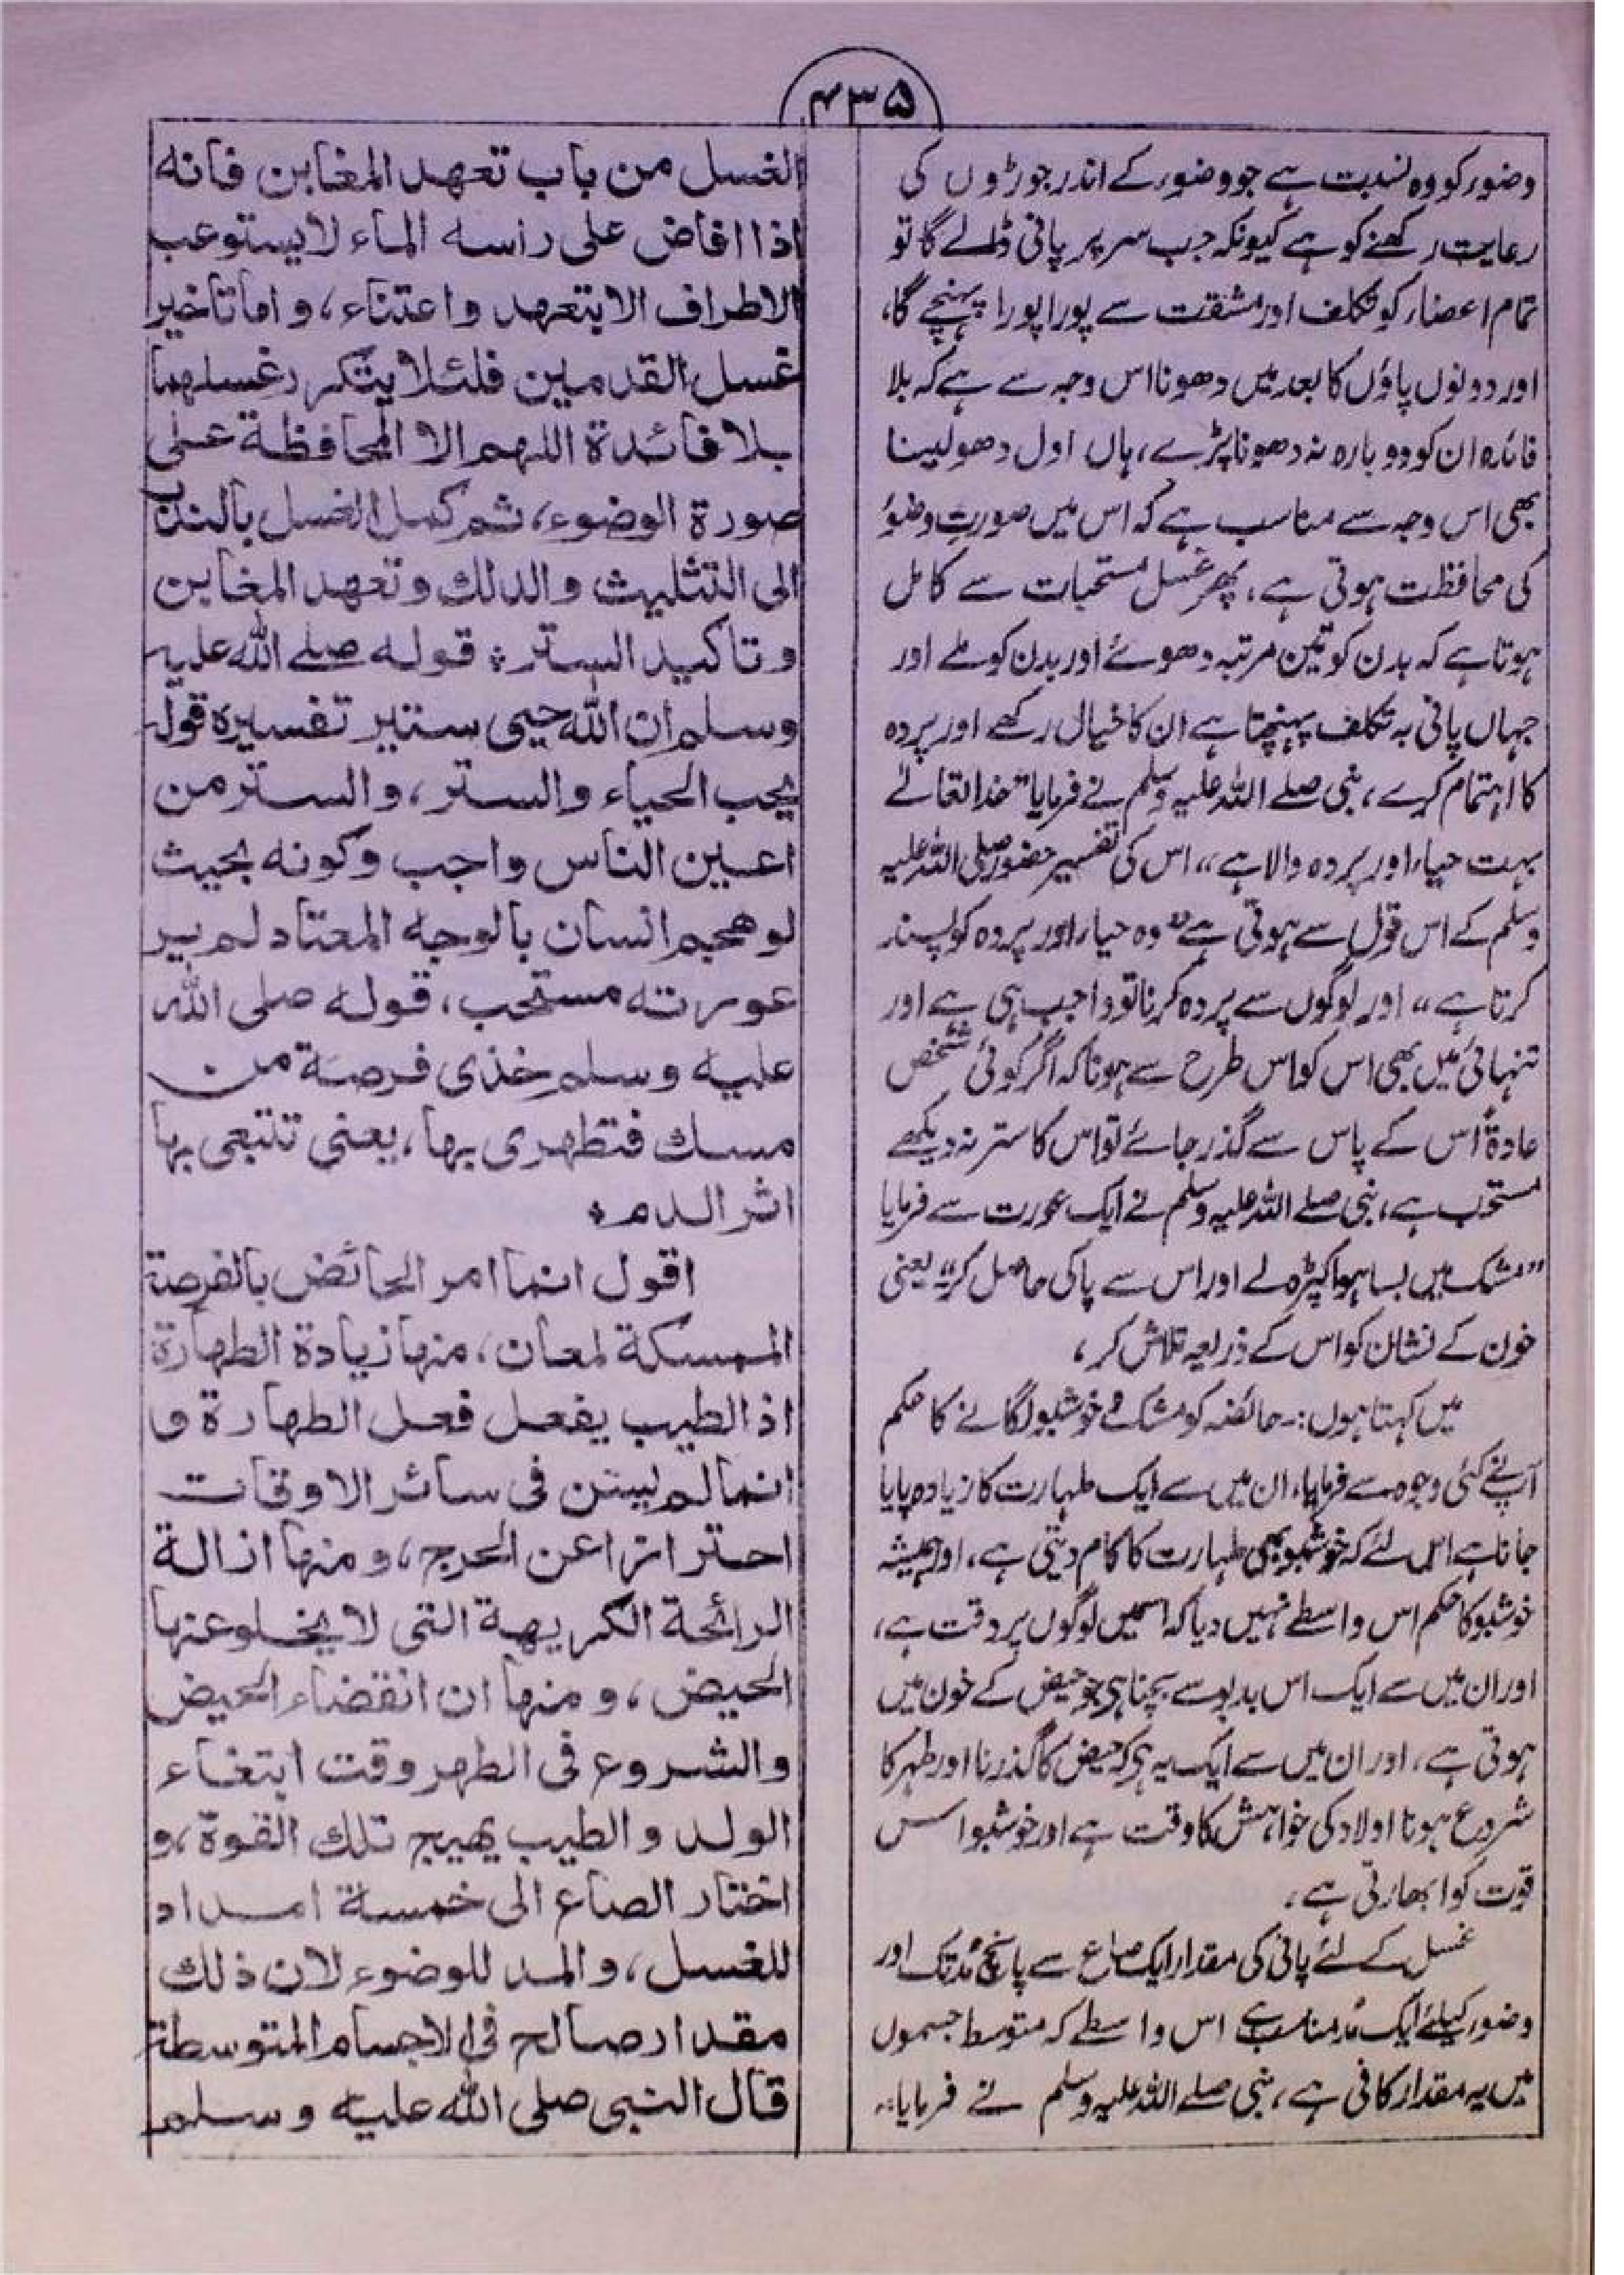 ۴۳۵
وضور کو وہ نسبت ہے جو وضور کے اندر جوڑوں کی
رعایت رکھنے کو ہے کیونکہ جب سر پر پانی ڈالے گا تو
تمام اعضار کو تکلف اور مشقت سے پورا پورا پہنچے گا،
اور دونوں پاؤں کا بعد میں دھونا اس وجہ سے ہے کہ بلا
فائدہ ان کو دوبارہ نہ دھونا پڑے، ہاں اول دھو لینا
بھی اس وجہ سے مناسب ہے کہ اس میں صورتِ وضوءٔ
کی محافظت ہوتی ہے، پھر غسل مستحبات سے کامل
ہوتا ہے کہ بدن کو تین مرتبہ دھوئے اور بدن کو ملے اور
جہاں پانی بہ تکلف پہنچتا ہے ان کا خیال رکھے اور پردہ
کا اہتمام کرے، نبی صلے اللہ علیہ وسلم نے فرمایا "خدا تعالےٰ
بہت حیار اور پردہ والا ہے" اس کی تفسیر حضور صلی اللہ علیہ
وسلم کے اس قول سے ہوتی ہے "وہ حیار اور پردہ کو پسند
کرتا ہے" اور لوگوں سے پردہ کرنا تو واجب ہی ہے اور
تنہائی میں بھی اس کو اس طرح سے ہونا کہ اگر کوئی شخص
عادۃً اس کے پاس سے گذر جائے تو اس کا ستر نہ دیکھے
مستحب ہے، نبی صلے اللہ علیہ وسلم نے ایک عورت سے فرمایا
"مشک میں بسا ہوا کپڑہ لے اور اس سے پاکی حاصل کر" یعنی
خون کے نشان کو اس کے ذریعہ تلاش کر،
میں کہتا ہوں:۔ حائضہ کو مشک و خوشبو لگانے کا حکم
آپ نے کئی وجوہ سے فرمایا، ان میں سے ایک طہارت کا زیادہ پایا
جانا ہے اس لئے کہ خوشبو بھی طہارت کا کام دیتی ہے، اور ہمیشہ
خوشبو کا حکم اس واسطے نہیں دیا کہ اسمیں لوگوں پر دقت ہے،
اور ان میں سے ایک اس بدبو سے بچنا ہی جو حیض کے خون میں
ہوتی ہے، اور ان میں سے ایک یہ ہی کہ حیض کا گذرنا اور طہر کا
شروع ہونا اولاد کی خواہش کا وقت ہے اور خوشبو اس
قوت کو ابھارتی ہے،
غسل کے لئے پانی کی مقدار ایک صاع سے پانچ مُد تک اور
وضور کیلئے ایک مُد مناسب ہے اس واسطے کہ متوسط جسموں
میں یہ مقدار کافی ہے، نبی صلے اللہ علیہ وسلم نے فرمایا:۔
الغسل من باب تعهد المغابن فانه
اذا افاض على راسه الماء لا يستوعب
الاطراف الا بتعهد واعتناء، واما تاخير
غسل القدمين فلئلا يتكرر غسلهما
بلا فائدة اللهم الا المحافظة على
صورة الوضوء، ثم كمل الغسل بالندب
الى التثليث والدلك وتعهد المغابن
وتاكيد الستر؛ قوله صلے الله عليه
وسلم ان الله حيى ستير تفسيره قوله
يحب الحياء والستر، والستر من
اعين الناس واجب وكونه بحيث
لو هجم انسان بالوجه المعتاد لم ير
عورته مستحب، قوله صلى الله
عليه وسلم خذى فرصة من
مسك فتطهرى بها، يعنى تتبعى بها
اثر الدم ٭
اقول انما امر الحائض بالفرصة
الممسكة لمعان، منها زيادة الطهارة
اذ الطيب يفعل فعل الطهارة و
انما لم يسن فى سائر الاوقات
احترازا عن الحرج، ومنها ازالة
الرائحة الكريهة التى لا يخلو عنها
الحيض، ومنها ان انقضاء الحيض
والشروع فى الطهر وقت ابتغاء
الولد والطيب يهيج تلك القوة، و
اختار الصاع الى خمسة امداد
للغسل، والمد للوضوء لان ذلك
مقدار صالح فى الاجسام المتوسطة
قال النبى صلى الله عليه وسلم